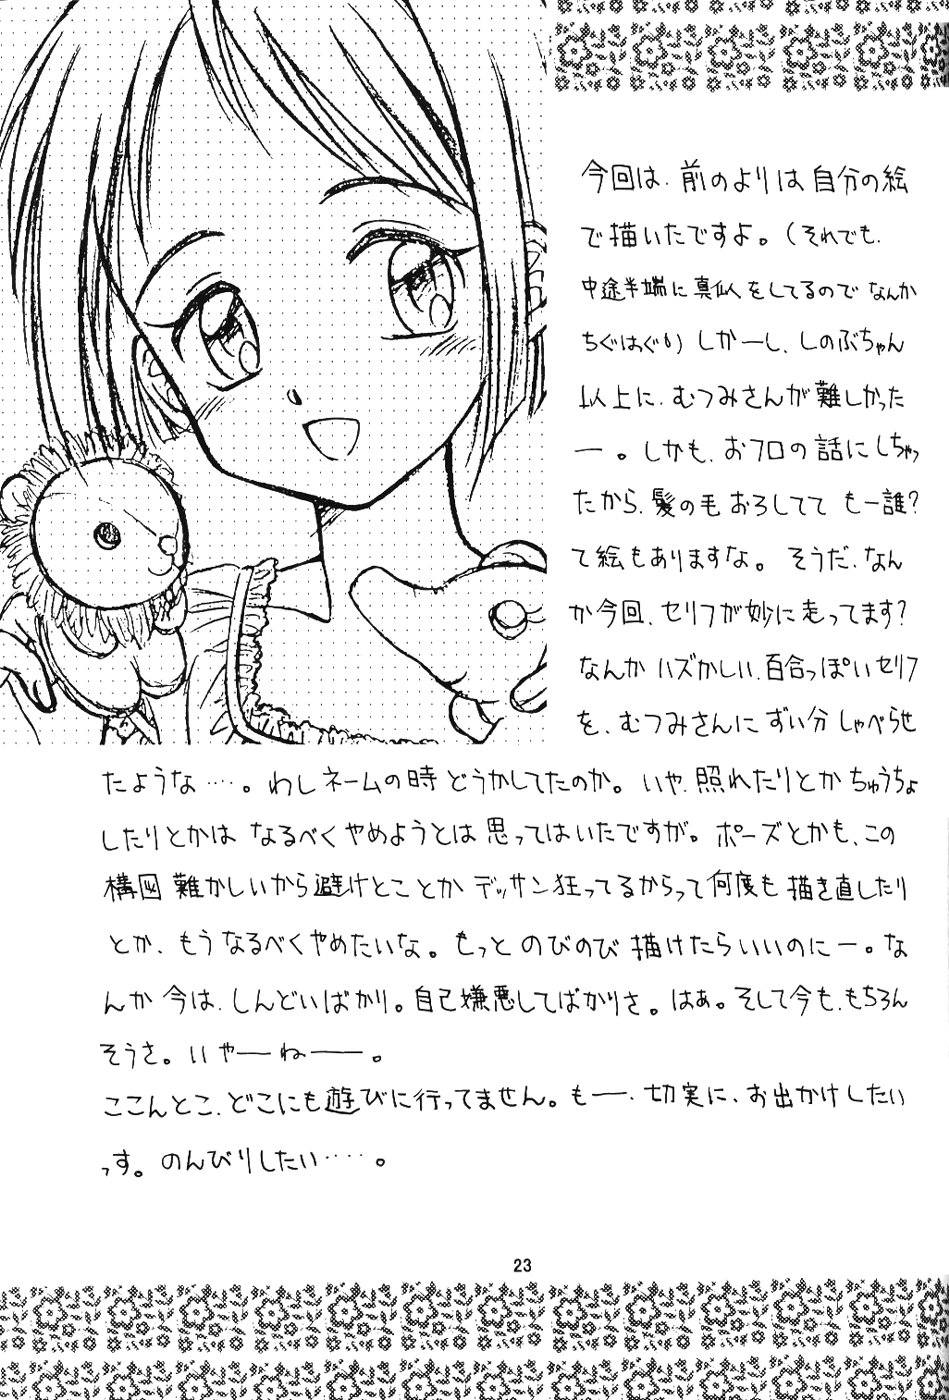 今回は、前のよりは自分の絵
で描いたですよ。（それでも、
中途半端に真似をしてるのでなんか
ちぐはぐ）しかーし、しのぶちゃん
以上に、むつみさんが難しかった
ー。しかも、おフロの話にしちゃっ
たから、髪の毛おろしてて もー誰？
て絵もありますな。そうだ、なん
か今回、セリフが妙に走ってます？
なんか ハズかしい、百合っぽいセリフ
を、むつみさんにずい分しゃべらせ
たような‥‥。わしネームの時どうかしてたのか。いや、照れたりとかちゅうちょ
したりとかは なるべくやめようとは思ってはいたですが。ポーズとかも、この
構図難かしいから避けとこことか デッサン狂ってるからって何度も描き直したり
とか、もうなるべくやめたいな。もっと のびのび描けたらいいのにー。な
んか今は、しんどいばかり。自己嫌悪してばかりさ。はあ。そして今も、もちろん
そうさ。いやーねー。
ここんとこ、どこにも遊びに行ってません。もー、切実に、お出かけしたい
っす。のんびりしたい‥‥。
23